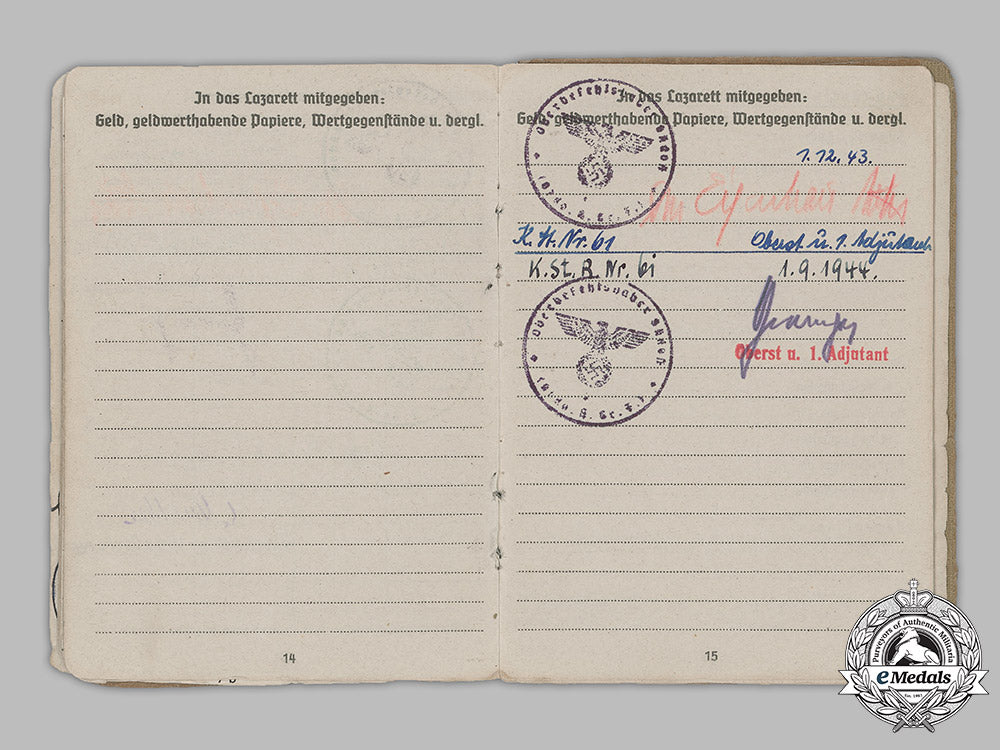 In das Lazarett mitgegeben:
Geld, geldwerthabende Papiere, Wertgegenstände u. dergl.
14
In das Lazarett mitgegeben:
Geld, geldwerthabende Papiere, Wertgegenstände u. dergl.
Oberbefehlshaber
1.12.43.
K. H. Nr. 61
Oberst u. 1. Adjutant
K. St. R. Nr. 61
1.9.1944.
Oberbefehlshaber
Oberst u. 1. Adjutant
15
Purveyors of Authentic Militaria
eMedals